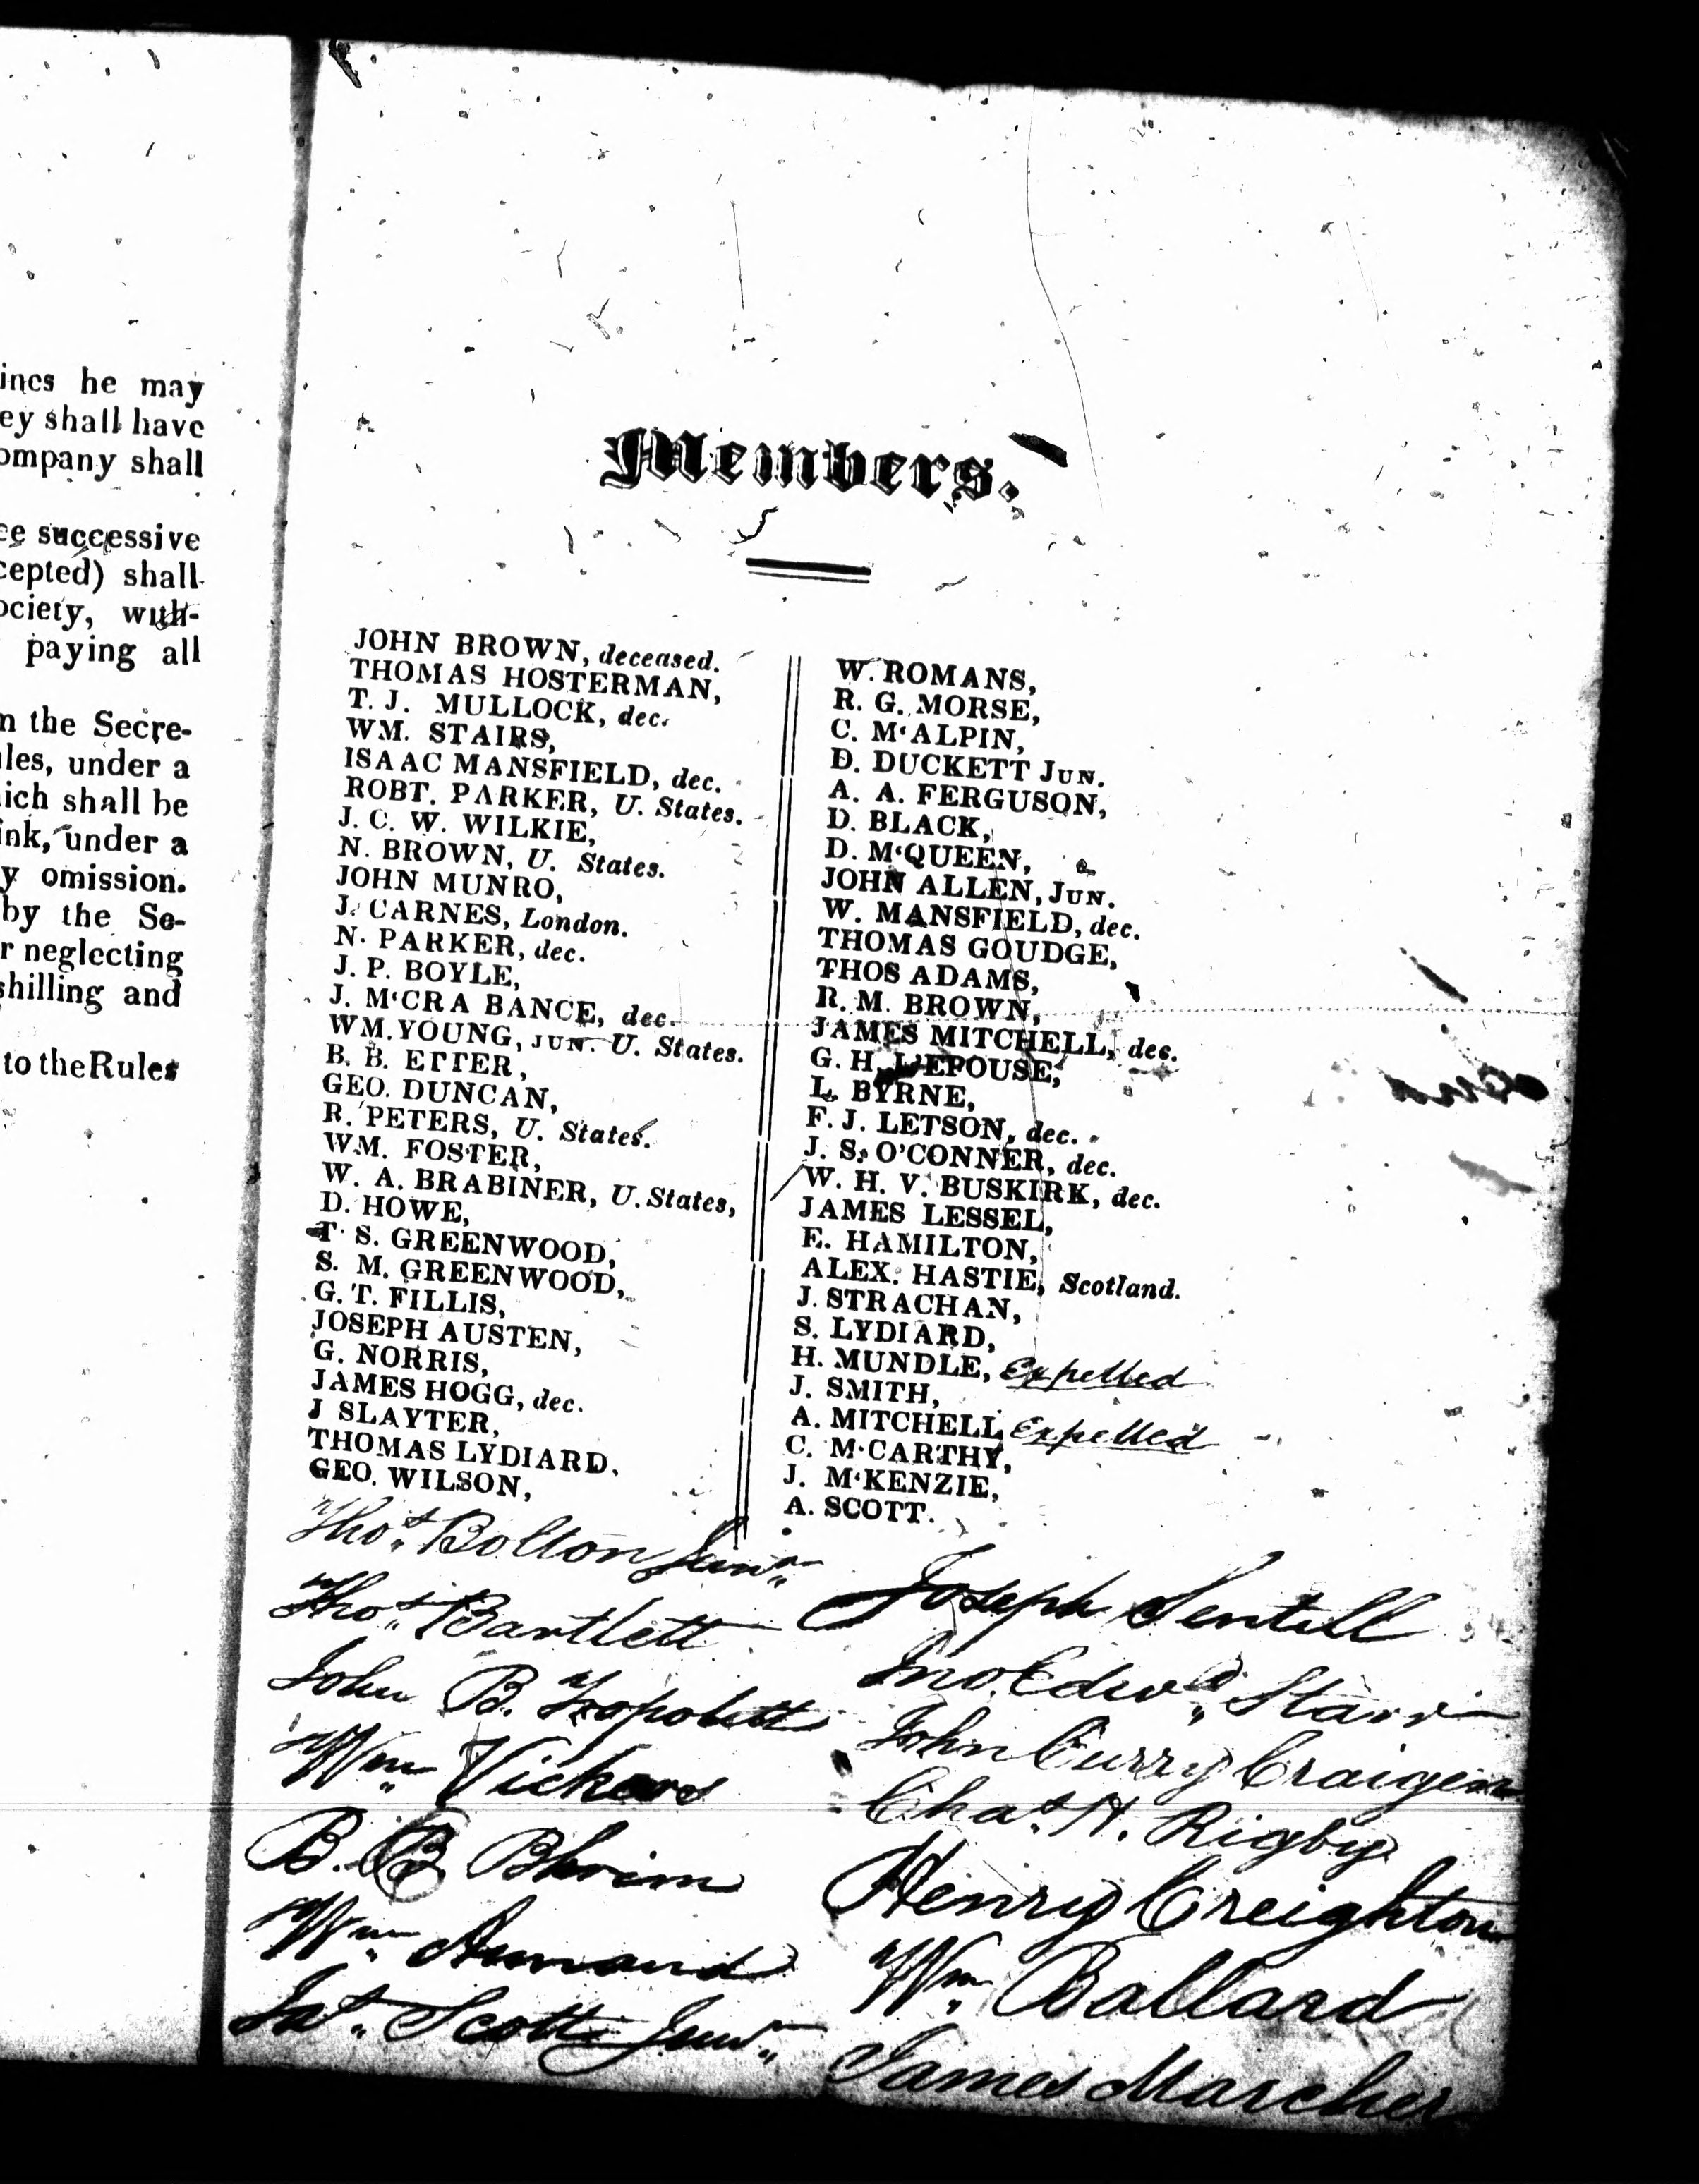 incs he may
ey shall have
ompany shall
ce successive
cepted) shall
ociety, with-
paying all
n the Secre-
les, under a
ich shall be
ink, under a
y omission.
by the Se-
r neglecting
shilling and
to the Rules
Members.
JOHN BROWN, deceased.
THOMAS HOSTERMAN,
T. J. MULLOCK, dec.
WM. STAIRS,
ISAAC MANSFIELD, dec.
ROBT. PARKER, U. States.
J. C. W. WILKIE,
N. BROWN, U. States.
JOHN MUNRO,
J. CARNES, London.
N. PARKER, dec.
J. P. BOYLE,
J. M'CRA BANCE, dec.
WM. YOUNG, JUN. U. States.
B. B. ETTER,
GEO. DUNCAN,
R. PETERS, U. States.
WM. FOSTER,
W. A. BRABINER, U. States,
D. HOWE,
T. S. GREENWOOD,
S. M. GREENWOOD,
G. T. FILLIS,
JOSEPH AUSTEN,
G. NORRIS,
JAMES HOGG, dec.
J SLAYTER,
THOMAS LYDIARD,
GEO. WILSON,
Thos. Bolton Junr.
Thos. Bartlett
John B.
Wm. Vickers
B. B.
Wm.
Jas. Scott Junr.
W. ROMANS,
R. G. MORSE,
C. M'ALPIN,
D. DUCKETT JUN.
A. A. FERGUSON,
D. BLACK,
D. M'QUEEN,
JOHN ALLEN, JUN.
W. MANSFIELD, dec.
THOMAS GOUDGE,
THOS ADAMS,
R. M. BROWN,
JAMES MITCHELL, dec.
G. H. LEPOUSE,
L. BYRNE,
F. J. LETSON, dec.
J. S. O'CONNER, dec.
W. H. V. BUSKIRK, dec.
JAMES LESSEL,
E. HAMILTON,
ALEX. HASTIE, Scotland.
J. STRACHAN,
S. LYDIARD,
H. MUNDLE, Expelled
J. SMITH,
A. MITCHELL, Expelled
C. M'CARTHY,
J. M'KENZIE,
A. SCOTT.
Joseph Sentell
Jno. Edwd. Starr
John Curry Craigen
Chas. H. Rigby
Henry Creighton
Wm. Ballard
James Marcher